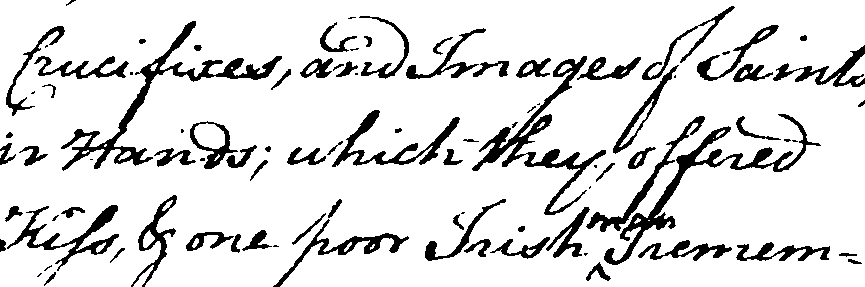 Crucifixes, and Images of Saints,
ir Hands; which they offered
Kiss, & one poor Irish man I remem=